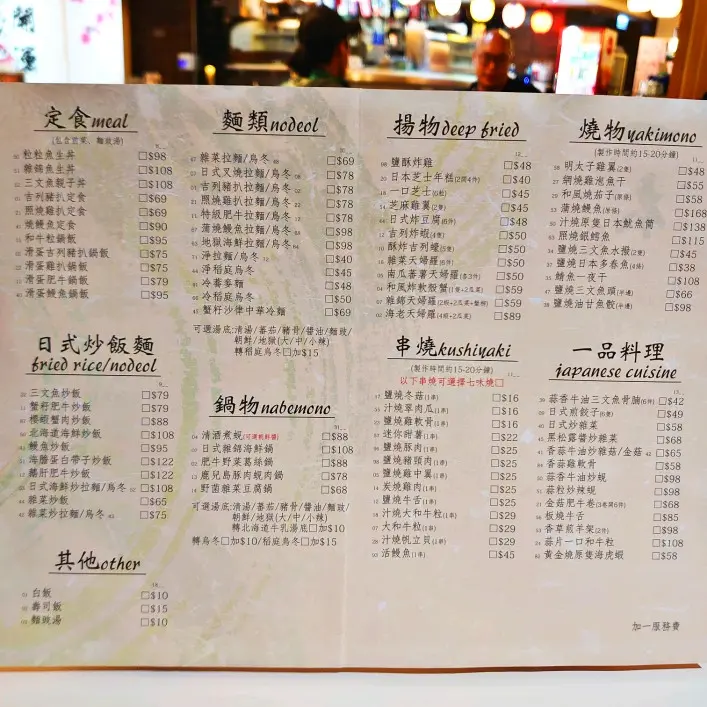 定食meal
(包含前菜、麵豉湯)
粒粒魚生丼 □$98
雜錦魚生丼 □$108
三文魚親子丼 □$108
吉列豬扒定食 □$69
照燒雞扒定食 □$69
燒鰻魚定食 □$90
和牛粒鍋飯 □$95
滑蛋吉列豬扒鍋飯 □$75
滑蛋雞扒鍋飯 □$75
滑蛋肥牛鍋飯 □$79
滑蛋鰻魚鍋飯 □$95
日式炒飯麵
fried rice/nodeol
三文魚炒飯 □$79
蟹籽肥牛炒飯 □$79
櫻蝦蟹肉炒飯 □$88
北海道海鮮炒飯 □$108
鰻魚炒飯 □$95
海膽蛋白帶子炒飯 □$122
鵝肝肥牛炒飯 □$122
日式海鮮炒拉麵/烏冬 □$108
雜菜炒飯 □$65
雜菜炒拉麵/烏冬 □$75
其他other
白飯 □$10
壽司飯 □$15
麵豉湯 □$10
麵類nodeol
雜菜拉麵/烏冬 □$69
日式叉燒拉麵/烏冬 □$78
吉列豬扒拉麵/烏冬 □$78
照燒雞扒拉麵/烏冬 □$78
特級肥牛拉麵/烏冬 □$78
蒲燒鰻魚拉麵/烏冬 □$98
地獄海鮮拉麵/烏冬 □$98
淨拉麵/烏冬 □$40
淨稻庭烏冬 □$45
冷蕎麥麵 □$48
冷稻庭烏冬 □$50
蟹籽沙律中華冷麵 □$69
可選湯底:清湯/蕃茄/豬骨/醬油/麵豉/
朝鮮/地獄(大/中/小辣)
轉稻庭烏冬□加$15
鍋物nabemono
清酒煮蜆(可選煎鮮醬) □$88
日式雜錦海鮮鍋 □$108
肥牛野菜葛絲鍋 □$88
鹿兒島豚肉蜆肉鍋 □$78
野菌雜菜豆腐鍋 □$68
可選湯底:清湯/蕃茄/豬骨/醬油/麵豉/
朝鮮/地獄(大/中/小辣)
轉北海道牛乳湯底□加$10
轉烏冬□加$10/稻庭烏冬□加$15
揚物deep fried
鹽酥炸雞 □$48
日本芝士年糕(2開4件) □$40
一口芝士(6粒) □$45
芝麻雞翼(2隻) □$45
日式炸豆腐(6件) □$48
吉列炸蝦(4隻) □$50
酥炸吉列蠔(3隻) □$50
雜菜天婦羅 □$50
南瓜蕃薯天婦羅(各3件) □$50
和風炸軟殼蟹(1隻+2瓜菜) □$59
雜錦天婦羅(2蝦+2瓜菜+蟹柳) □$59
海老天婦羅(4蝦+2瓜菜) □$89
串燒kushiyaki
(製作時間約15-20分鐘)
以下串燒可選擇七味燒□
鹽燒冬菇(1串) □$16
汁燒翠肉瓜(1串) □$16
鹽燒雞軟骨(1串) □$16
迷你甜薯(1串) □$22
鹽燒豚肉(1串) □$25
鹽燒豬頸肉(1串) □$25
鹽燒雞中翼(1串) □$25
炭燒雞肉(1串) □$25
鹽燒牛舌(1串) □$25
汁燒大和牛粒(1串) □$29
大和牛粒(1串) □$29
汁燒帆立貝(1串) □$29
活鰻魚(1串) □$45
燒物yakimono
(製作時間約15-20分鐘)
明太子雞翼(2隻) □$48
網燒雞泡魚干 □$55
和風燒茄子(原條) □$58
蒲燒鰻魚(原條) □$168
汁燒原隻日本魷魚筒 □$138
照燒銀鱈魚 □$115
鹽燒三文魚水掇(2條) □$45
鹽燒日本多春魚(4條) □$38
鯖魚一夜干 □$108
鹽燒三文魚頭(半邊) □$66
鹽燒油甘魚骹(半邊) □$98
一品料理
japanese cuisine
蒜香牛油三文魚骨腩(6件) □$42
日式煎餃子(6隻) □$49
日式炒雜菜 □$58
黑松露醬炒雜菜 □$68
香蒜牛油炒雜菇/金菇 □$65
香蒜雞軟骨 □$58
蒜香牛油炒蜆 □$98
蒜粒炒辣蜆 □$98
金菇肥牛卷(3卷開6件) □$68
板燒牛舌 □$85
香草煎羊架(2件) □$98
蒜片一口和牛粒 □$108
黃金燒原隻海虎蝦 □$58
加一服務費